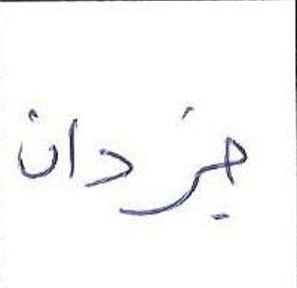 جزدان